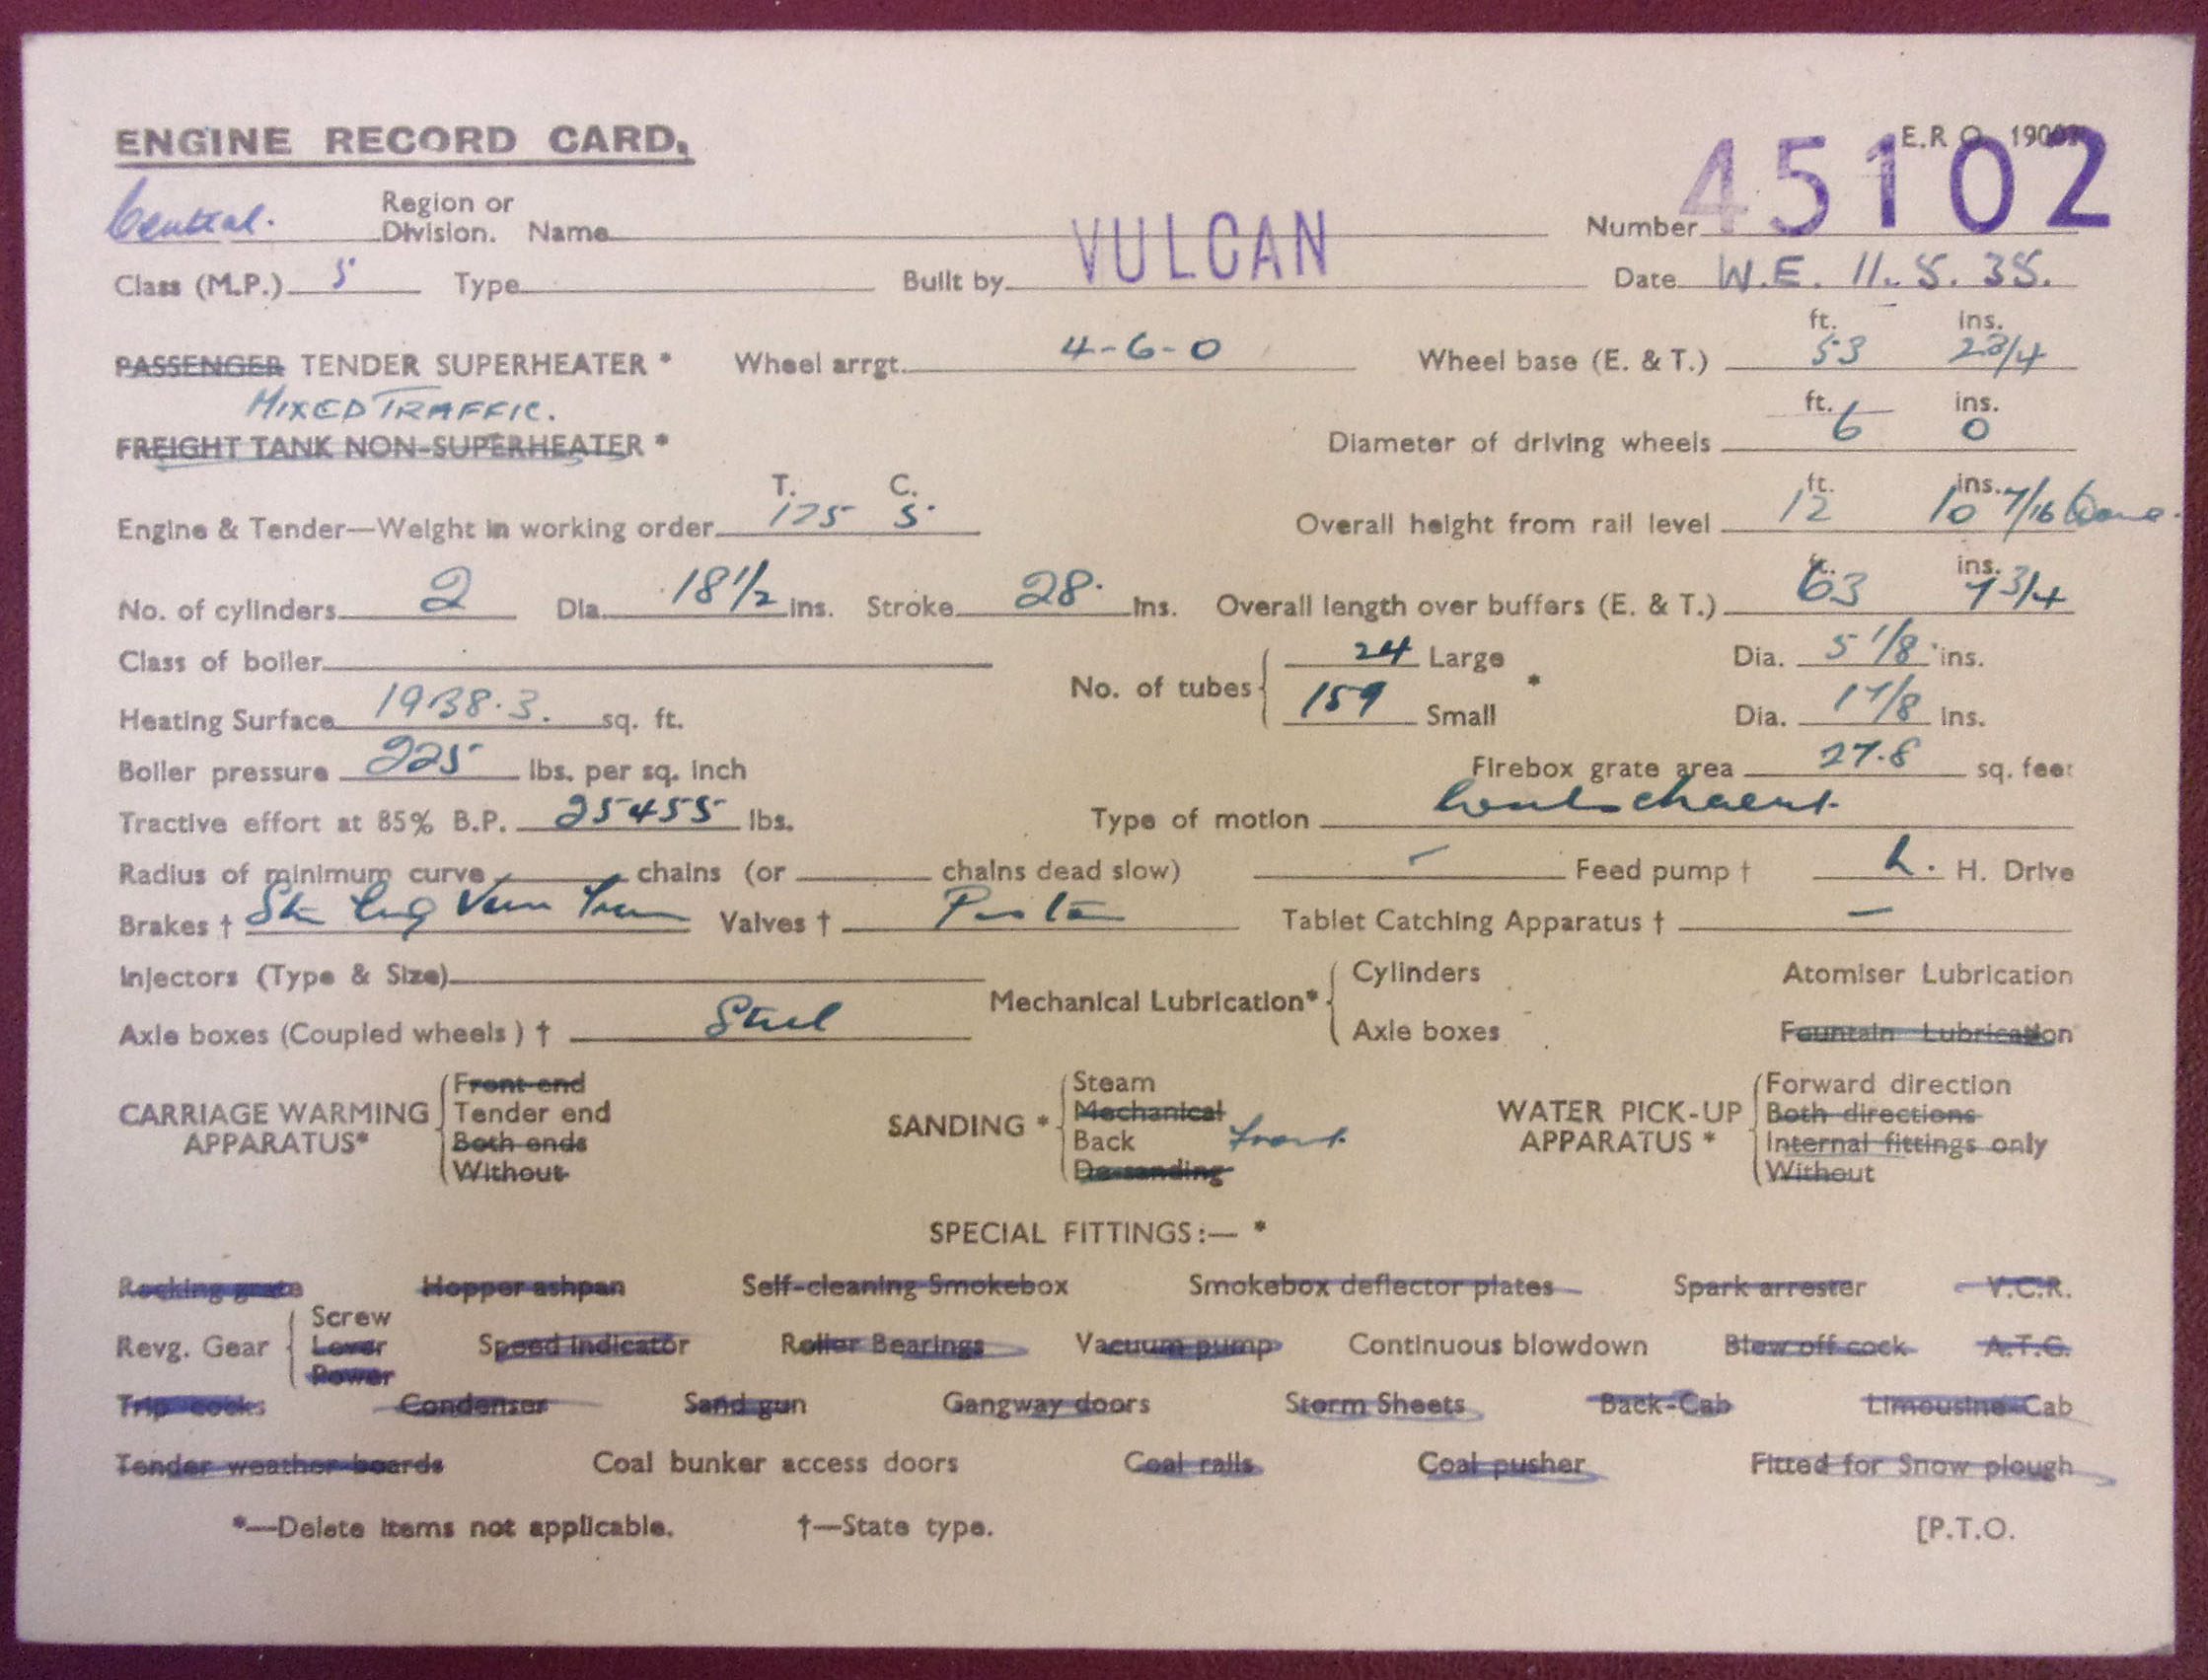 ENGINE RECORD CARD,
E.R.O. 1900
Central. Region or Division. Name Number 45102
Class (M.P.) 5 Type Built by VULCAN Date W.E. 11.5.35.
ft. ins.
PASSENGER TENDER SUPERHEATER * Wheel arrgt. 4-6-0 Wheel base (E. & T.) 53 2 3/4
MIXED TRAFFIC. ft. ins.
FREIGHT TANK NON-SUPERHEATER * Diameter of driving wheels 6 0
T. C. ft. ins.
Engine & Tender—Weight in working order 125 5 Overall height from rail level 12 10 7/16
ft. ins.
No. of cylinders 2 Dia. 18 1/2 ins. Stroke 28 Ins. Overall length over buffers (E. & T.) 63 7 3/4
Class of boiler No. of tubes 24 Large * Dia. 5 1/8 ins.
Heating Surface 1938.3. sq. ft. 159 Small Dia. 1 7/8 Ins.
Boiler pressure 225 lbs. per sq. inch Firebox grate area 27.8 sq. feet
Tractive effort at 85% B.P. 25455 lbs. Type of motion
Radius of minimum curve chains (or chains dead slow) — Feed pump † L. H. Drive
Brakes † Stm Eng Vcm Train Valves † Piston Tablet Catching Apparatus † —
Injectors (Type & Size) Mechanical Lubrication* Cylinders Atomiser Lubrication
Axle boxes (Coupled wheels) † Steel Axle boxes Fountain Lubrication
CARRIAGE WARMING APPARATUS* Front end
Tender end
Both ends
Without
SANDING * Steam
Mechanical
Back front
De-sanding
WATER PICK-UP APPARATUS * Forward direction
Both directions
Internal fittings only
Without
SPECIAL FITTINGS:— *
Rocking grate Hopper ashpan Self-cleaning Smokebox Smokebox deflector plates Spark arrester V.C.R.
Revg. Gear Screw
Lever
Power
Speed indicator Roller Bearings Vacuum pump Continuous blowdown Blow off cock A.T.C.
Trip cocks Condenser Sand gun Gangway doors Storm Sheets Back-Cab Limousine-Cab
Tender weather boards Coal bunker access doors Coal rails Coal pusher Fitted for Snow plough
*—Delete items not applicable. †—State type. [P.T.O.